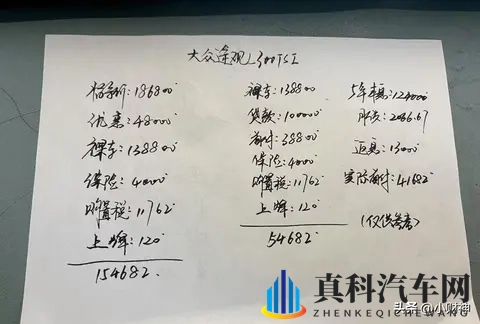 大众途观L300TSI
指导价:186800
优惠:48000
裸车:138800
保险:4000
购置税:11762
上牌:120
154682
裸车:138800
贷款:100000
首付:38800
保险:4000
购置税:11762
上牌:120
54682
5年本息:124000
月供:2066.67
返息:13000
实际首付:41682
(仅供参考)
真科汽车网
ZHENKEQICHEWANG
头条@小财神